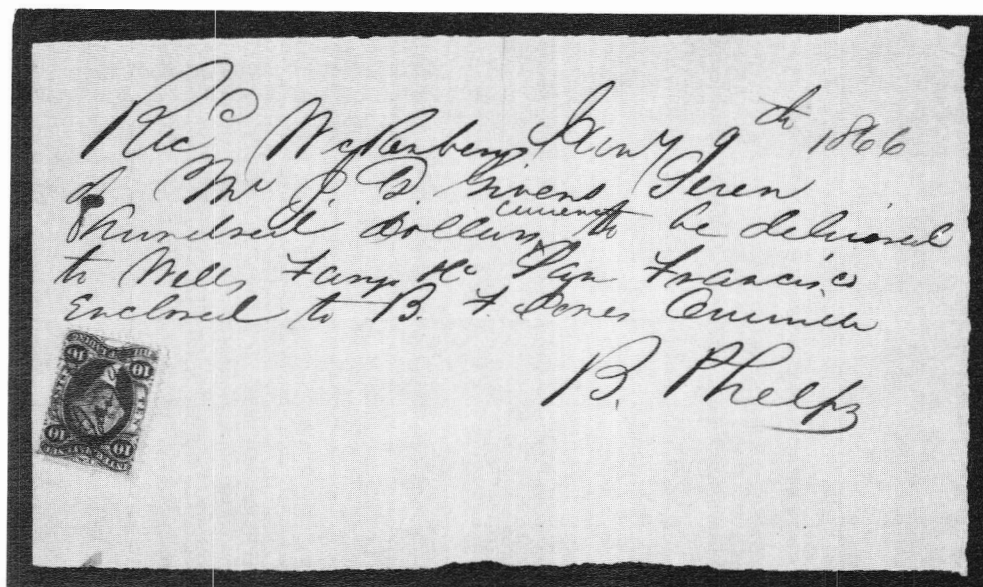 Recd Wickenburg Jany 9th 1866
of Mr J. D. Givens Seven
Hundred Dollars currency to be delivered
to Wells Fargo & Co San Francisco
Enclosed to B. F. Jones
B. Phelps
10 10
10 10